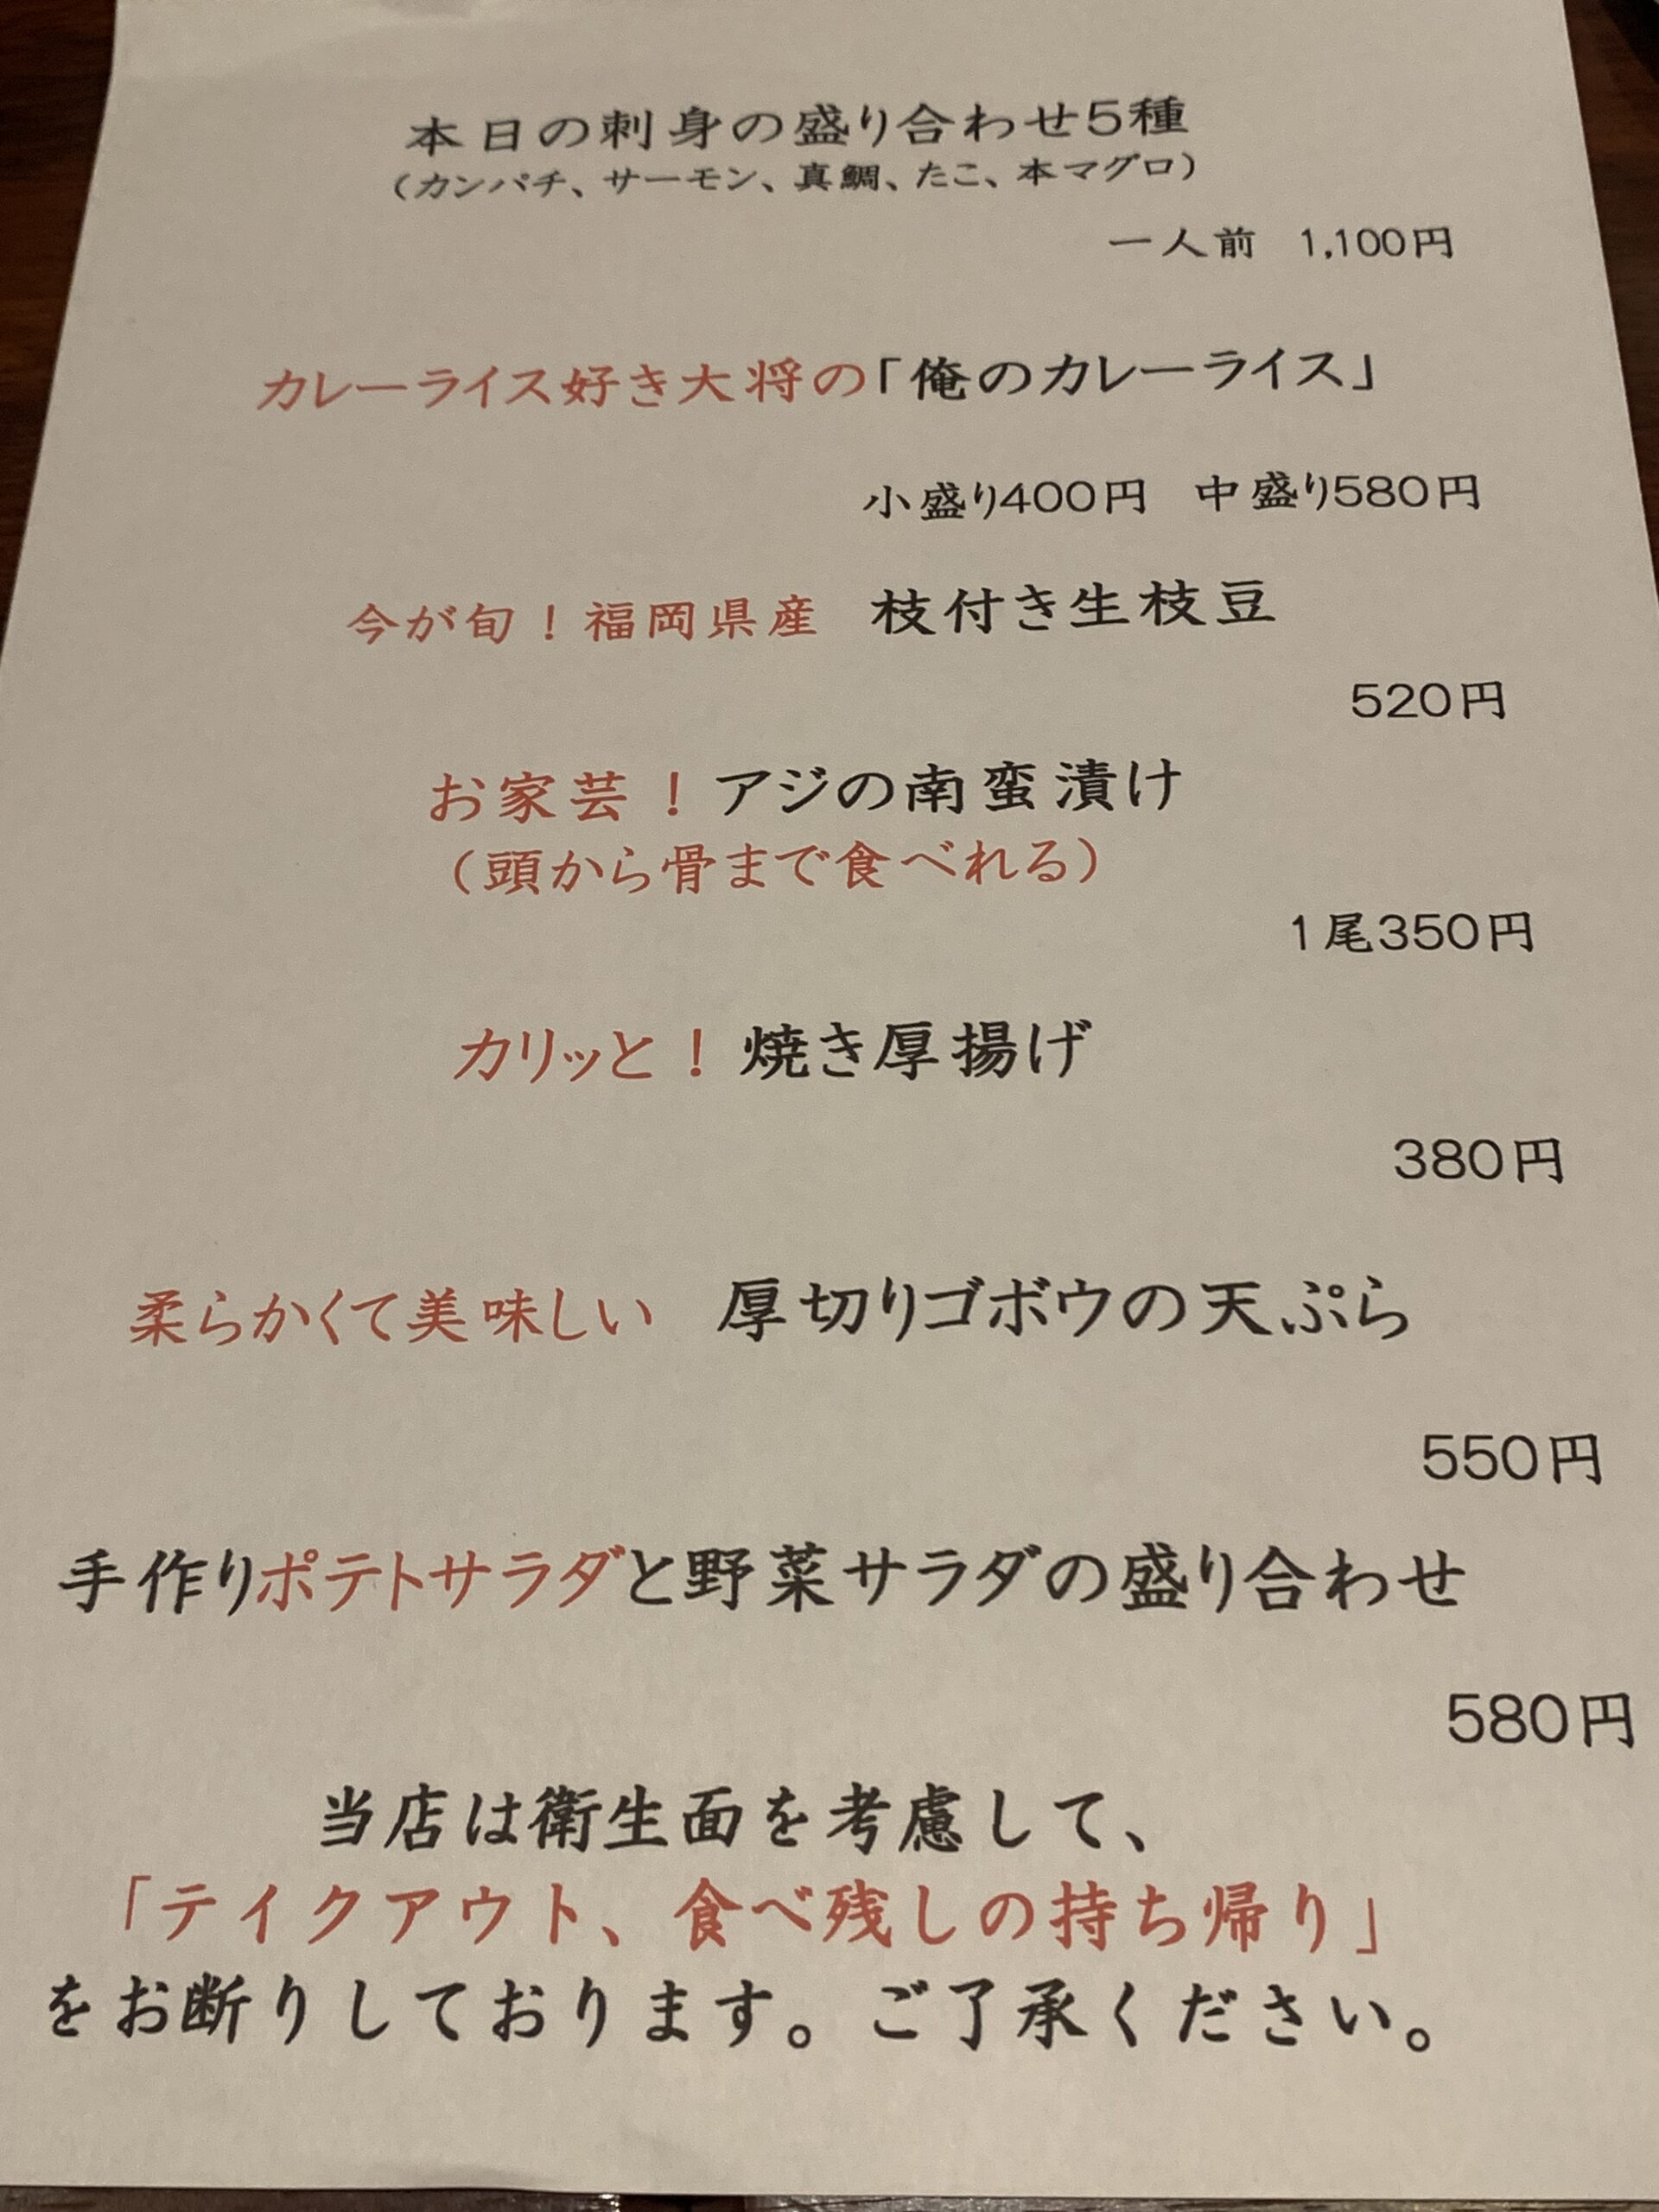 本日の刺身の盛り合わせ5種
（カンパチ、サーモン、真鯛、たこ、本マグロ）
一人前　1,100円
カレーライス好き大将の「俺のカレーライス」
小盛り400円　中盛り580円
今が旬！福岡県産　枝付き生枝豆
520円
お家芸！アジの南蛮漬け
（頭から骨まで食べれる）
1尾350円
カリッと！焼き厚揚げ
380円
柔らかくて美味しい　厚切りゴボウの天ぷら
550円
手作りポテトサラダと野菜サラダの盛り合わせ
580円
当店は衛生面を考慮して、
「テイクアウト、食べ残しの持ち帰り」
をお断りしております。ご了承ください。